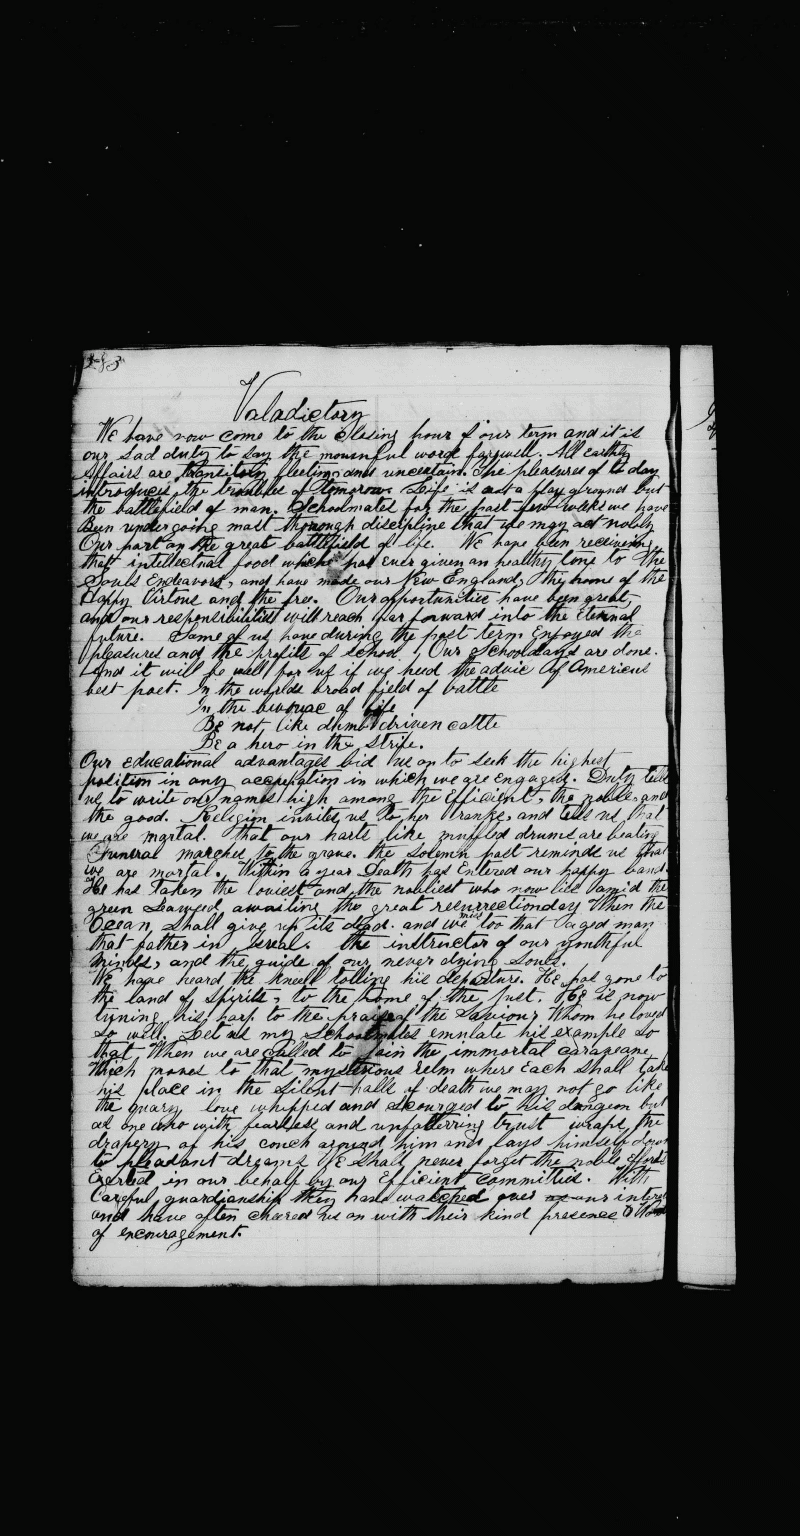 Valadictory
We have now come to the Closing hour of our term and it is
our sad duty to say the mournful word farewell. All earthly
Affairs are transitory fleeting and uncertain. The pleasures of to day
introduces the troubles of tomorrow. Life is not a play ground but
the battlefield of man. Schoolmates for the past few weeks we have
Been undergoing most thorough discipline that we may act nobly
Our part on the great battlefield of life. We have been receiving
that intellectual food which has ever given an healthy tone to the
Souls Endeavors, and have made our New England, the home of the
Happy Virtous and the free. Our opportunities have been great,
and our responsibilities will reach far forward into the Eternal
future. Some of us have during the past term Enjoyed the
pleasures and the profits of school. Our Schooldays are done.
And it will be well for us if we heed the advice Of Americas
best poet. In the worlds broad field of battle
In the bivouac of life
Be not like dumb driven cattle
Be a hero in the strife.
Our educational advantages bid us on to seek the highest
position in any occupation in which we are engaged. Duty tells
us to write our names high among the Efficient, the noble, and
the good. Religion invites us to her ranks, and tells us that
we are mortal. That our harts like muffled drums are beating
Funeral marches to the grave. the Solemn past reminds us that
we are mortal. Within a year Death has Entered our happy band.
He has Taken the loviest and the nobliest who now lies amid the
green Seaweed awaiting the great resurrection day When the
Ocean, shall give up its dead. and we miss too that aged man
that father in Isreal. the instructor of our youthful
minds, and the guide of our never dying Souls.
We have heard the kneell tolling his departure. He has gone to
the land of Spirits, to the home of the Just. He is now
tyning his harp to the praise of the Saviour Whom he loved
so well. Let us my Schoolmates emulate his example so
that When we are Called to Join the immortal caravan
Which moves to that mysterious relm where Each Shall take
his place in the Silent halls of death we may not go like
the quary slave whipped and Scourged to his dungeon but
as one who with fearless and unfalterring trust wraps the
drapery of his couch around him and lays himself down
to pleasant dreams We Shall never forget the noble Efforts
Exerted in our behalf by our Efficient committies. With
Careful guardianship they have watched over our interest
and have often cheared us on with their kind presence &
of encouragement.